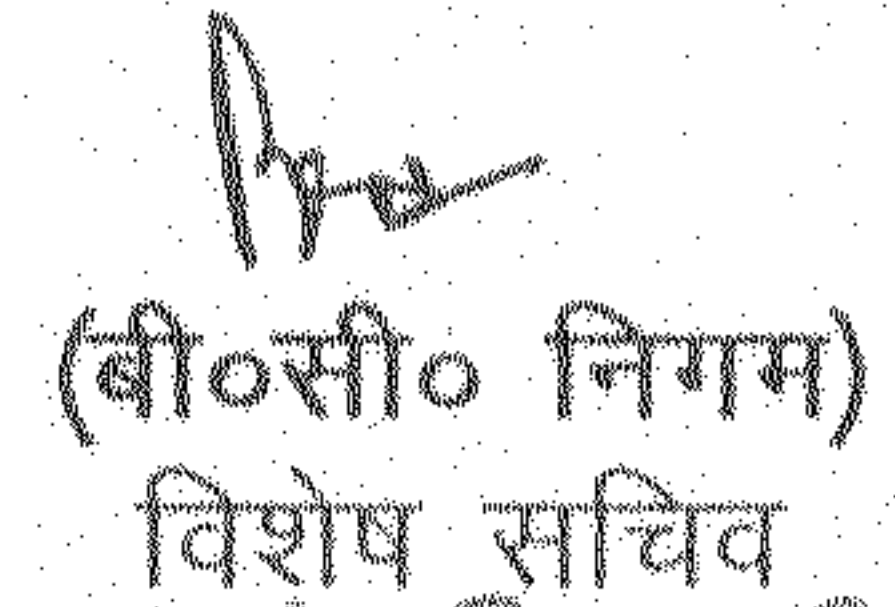 (बी०सी० निगम)
विशेष सचिव